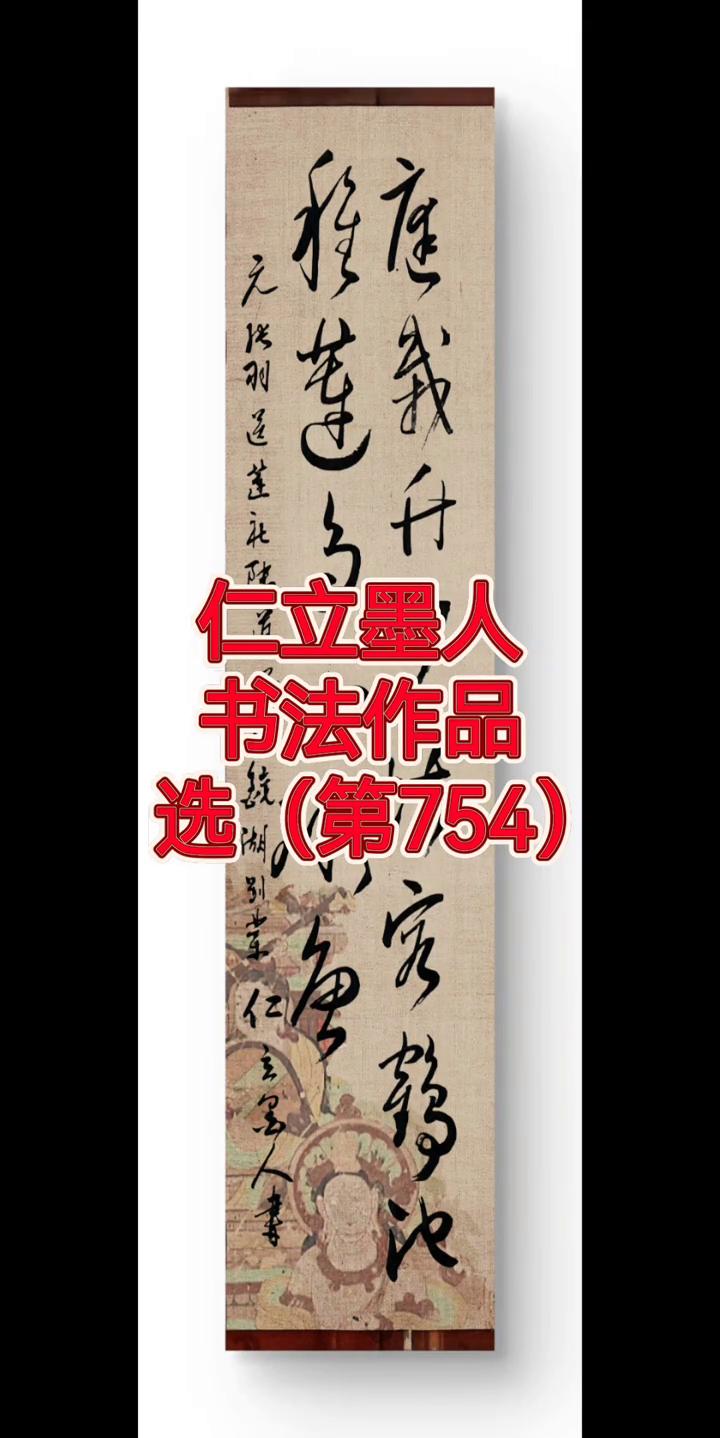 仁立墨人
书法作品
选（第754）
庭栽升
容鹤池
种莲多
鱼
元张羽送莲社陆道
镜湖别业仁立墨人书